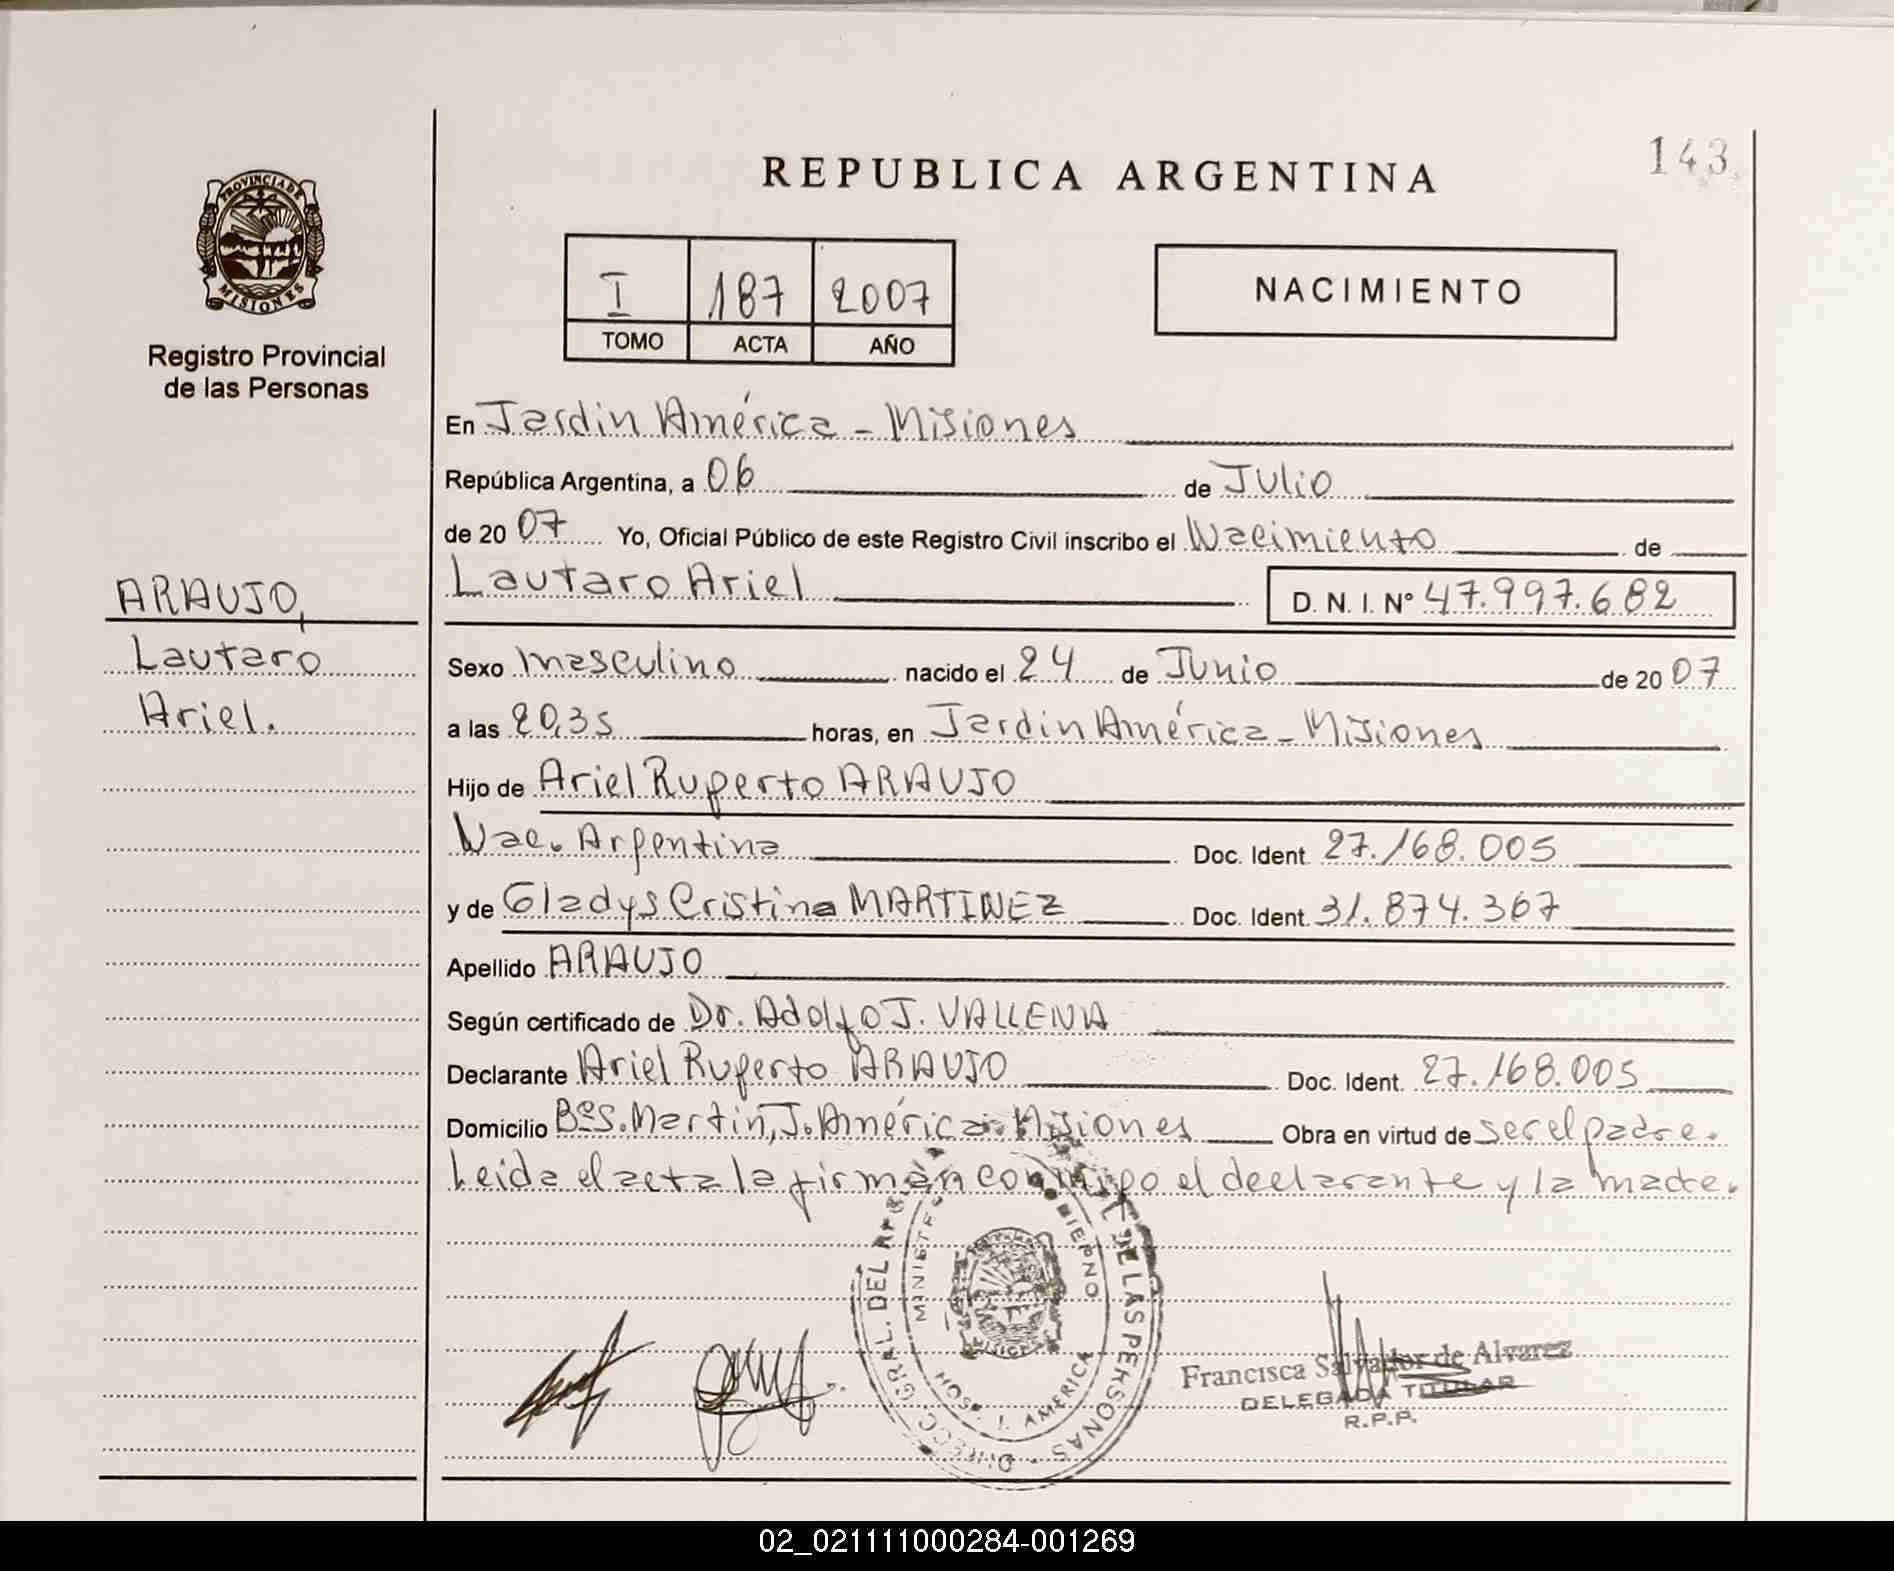 143
REPUBLICA ARGENTINA
PROVINCIA DE
MISIONES
Registro Provincial
de las Personas
I 187 2007
TOMO ACTA AÑO
NACIMIENTO
ARAUJO,
Lautaro
Ariel.
En Jardin América - Misiones
República Argentina, a 06 de Julio
de 2007 Yo, Oficial Público de este Registro Civil inscribo el Nacimiento de
Lautaro Ariel D. N. I. Nº 47.997.682
Sexo masculino nacido el 24 de Junio de 2007
a las 20,35 horas, en Jardin América - Misiones
Hijo de Ariel Ruperto ARAUJO
Nac. Argentina Doc. Ident. 27.168.005
y de Gladys Cristina MARTINEZ Doc. Ident. 31.874.367
Apellido ARAUJO
Según certificado de Dr. Adolfo J. VALLENA
Declarante Ariel Ruperto ARAUJO Doc. Ident. 27.168.005
Domicilio BºS. Martin, J. América - Misiones Obra en virtud de ser el padre.
Leida el acta la firman conmigo el declarante y la madre.
DE LAS PERSONAS
HOSP. J. AMERICA
Francisca Salvador de Alvarez
DELEGADA TITULAR
R.P.P.
02_021111000284-001269